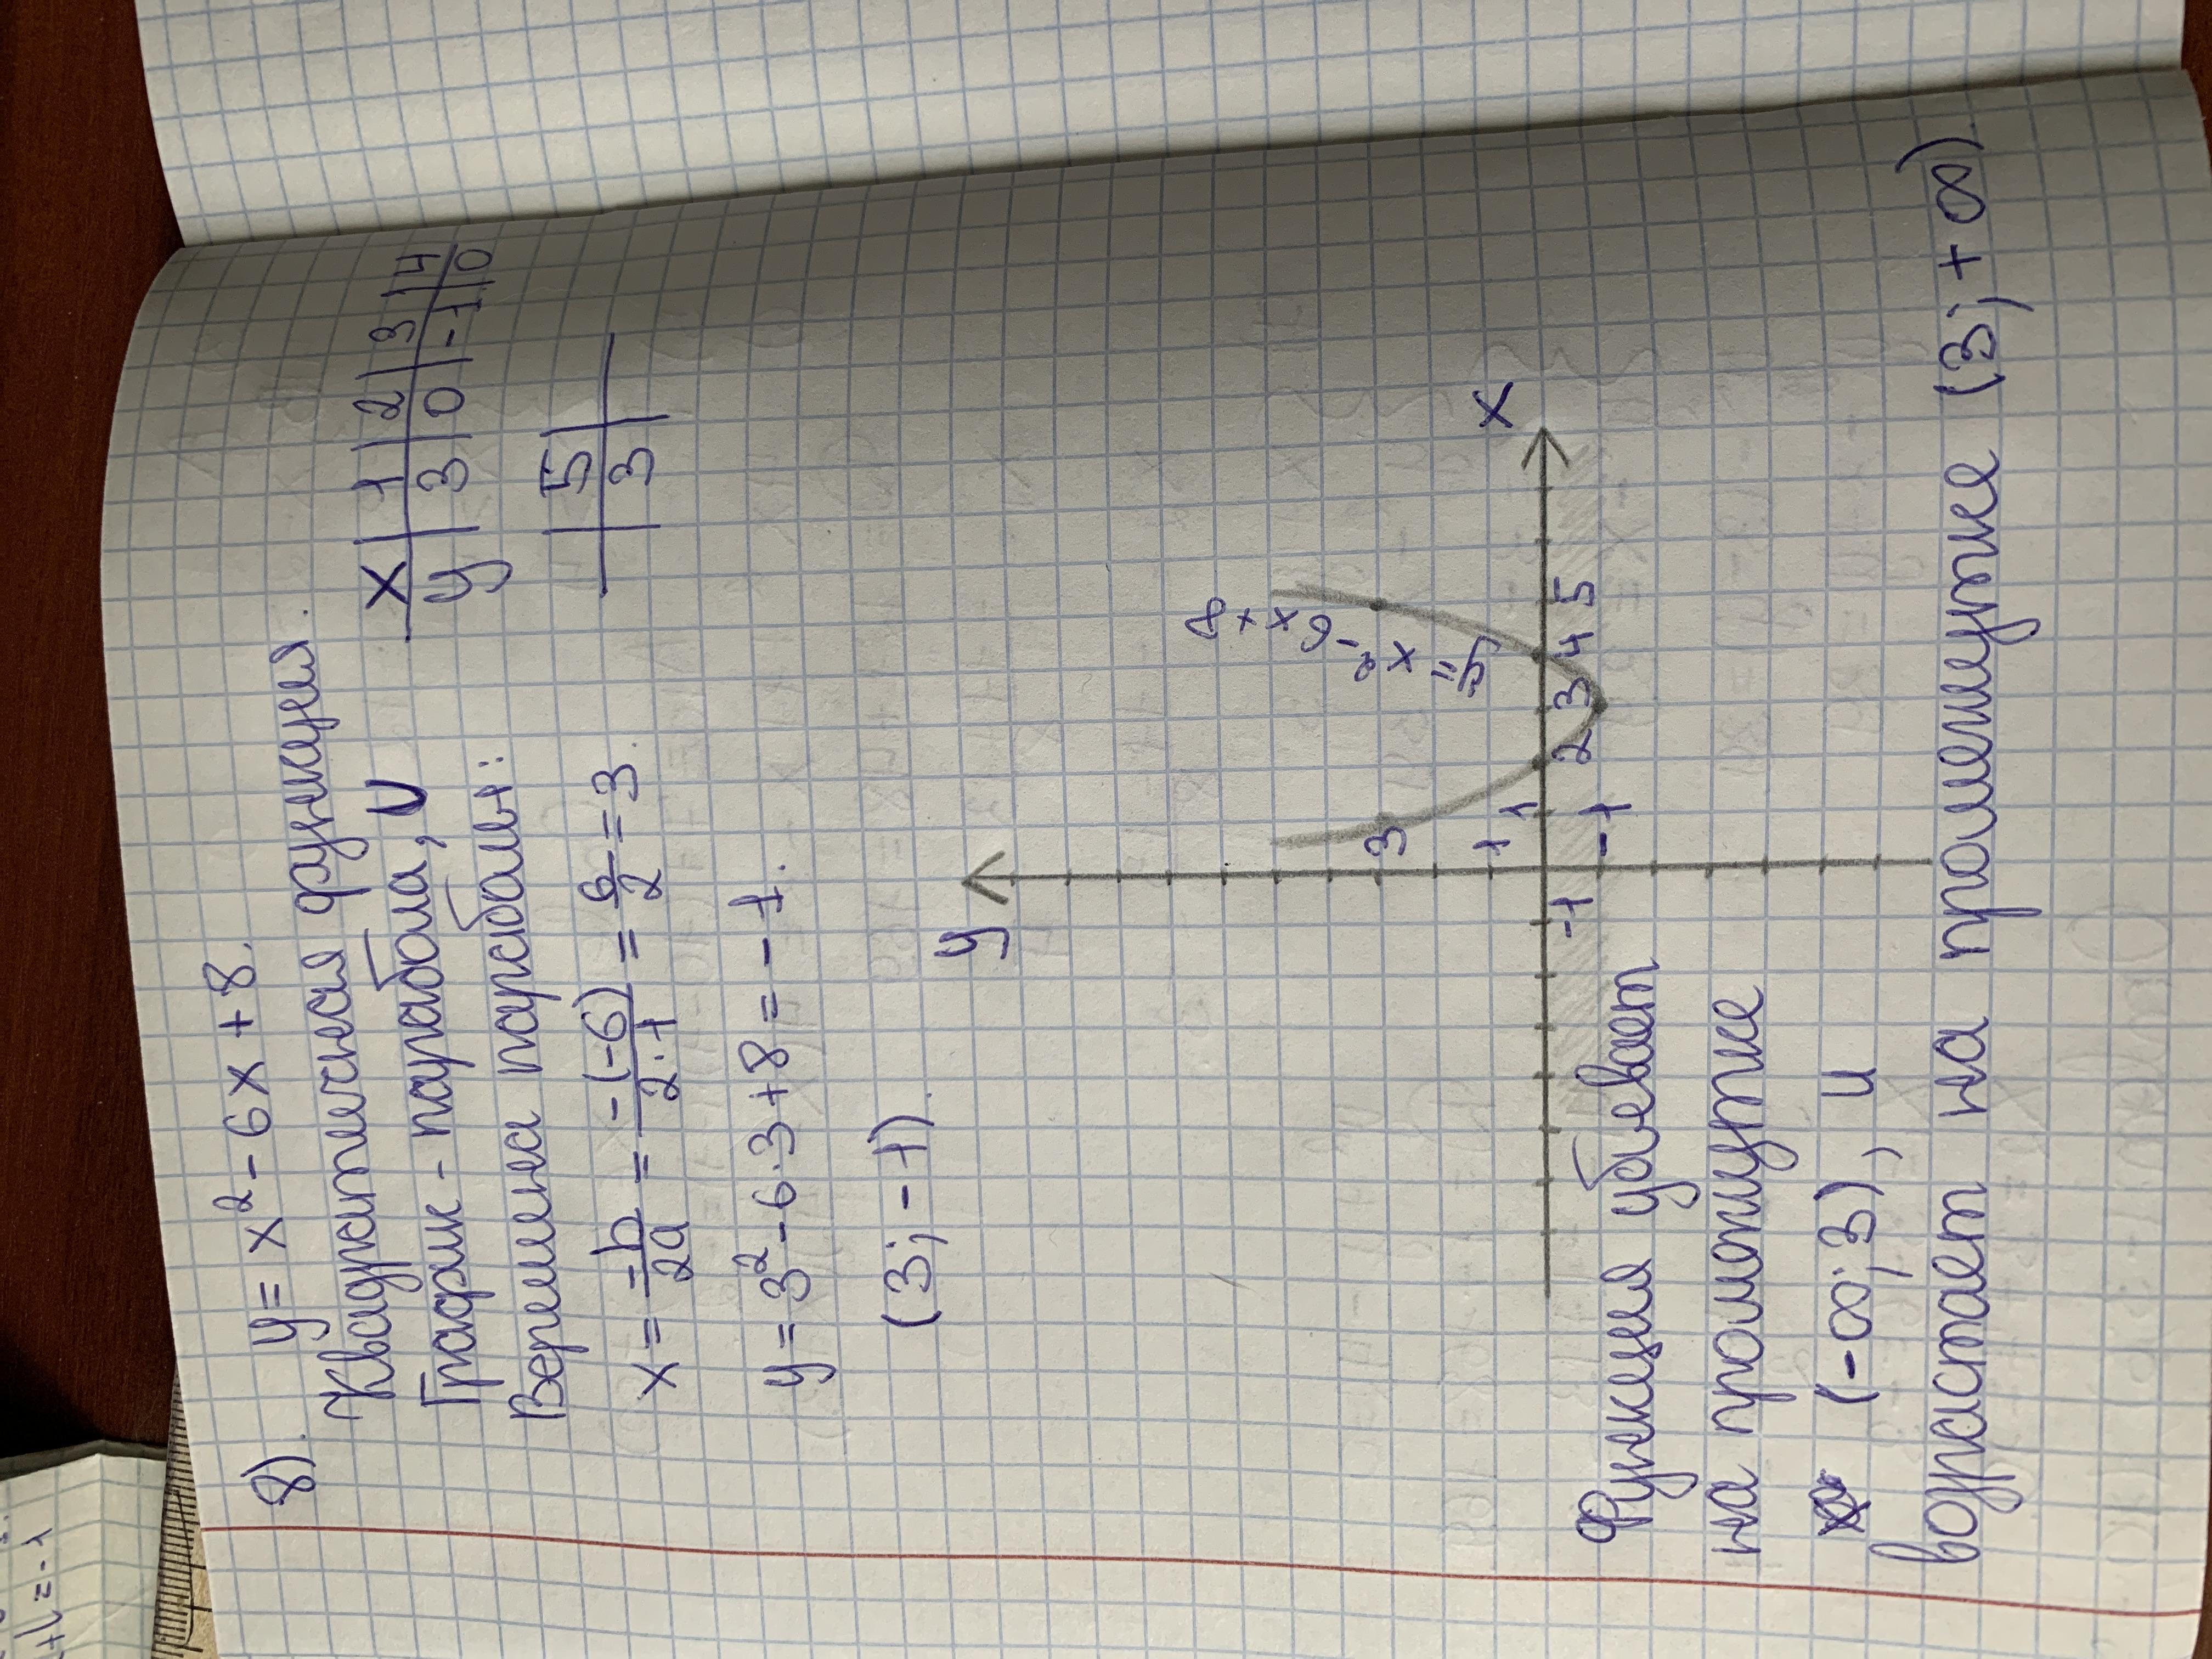 8). y = x² - 6x + 8.
Квадратичная функция.
График - парабола, U
Вершина параболы:
x = -b/2a = -(-6)/2·1 = 6/2 = 3.
y = 3² - 6·3 + 8 = -1.
(3; -1).
x | 1 | 2 | 3 | 4
y | 3 | 0 | -1 | 0
| 5 |
| 3 |
y
x
y = x² - 6x + 8
3
1
-1
-1 1 2 3 4 5
Функция убывает
на промежутке
(-∞; 3), и
возрастает на промежутке (3; +∞).